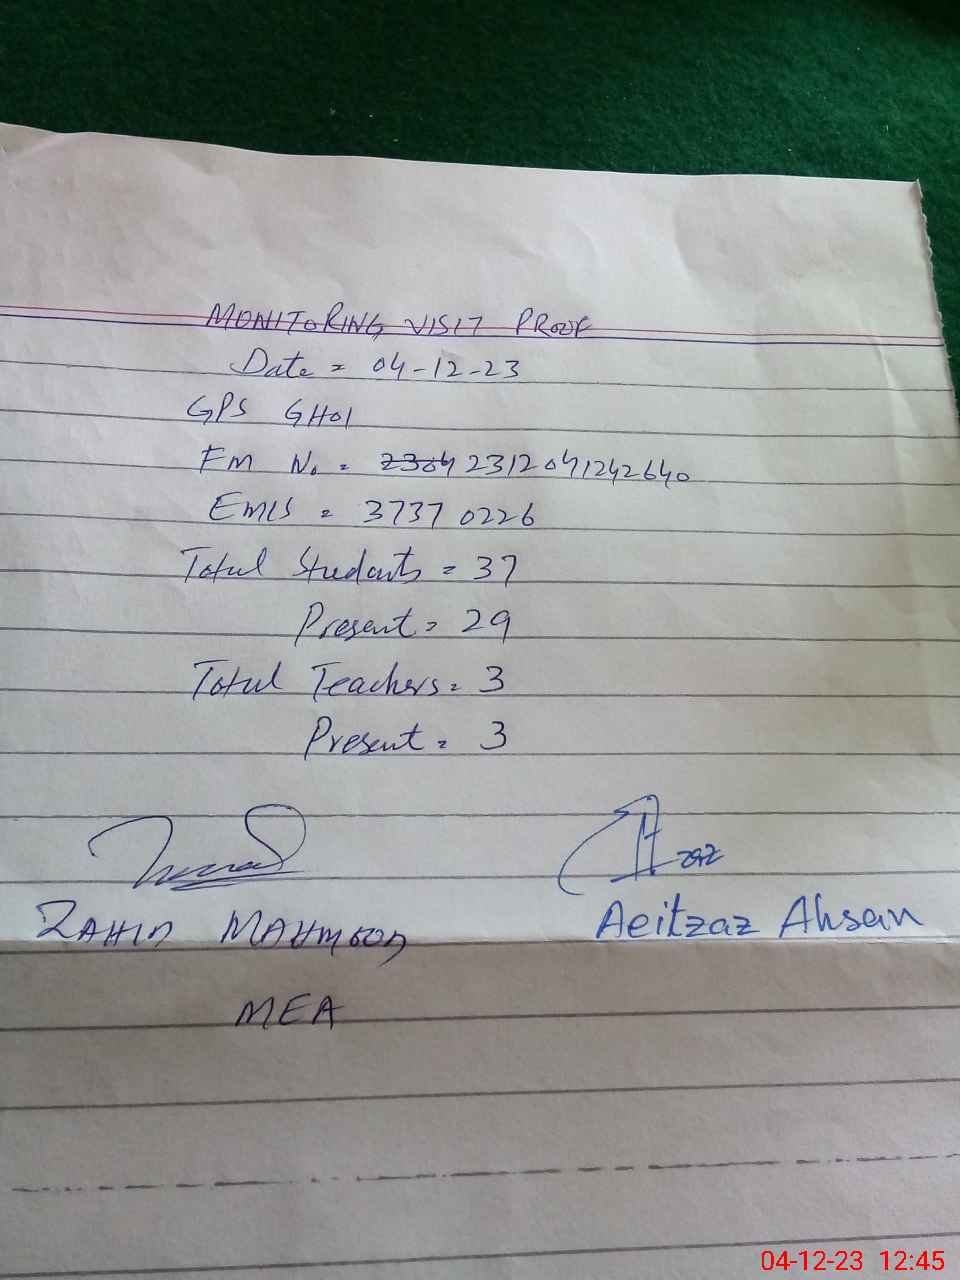 MONITORING VISIT PROOF
Date = 04-12-23
GPS GHOI
FM No. = 2304 2312041242640
EMIS = 37370226
Total Students = 37
Present = 29
Total Teachers = 3
Present = 3
ZAHID MAHMOOD
Aeitzaz Ahsan
MEA
04-12-23 12:45